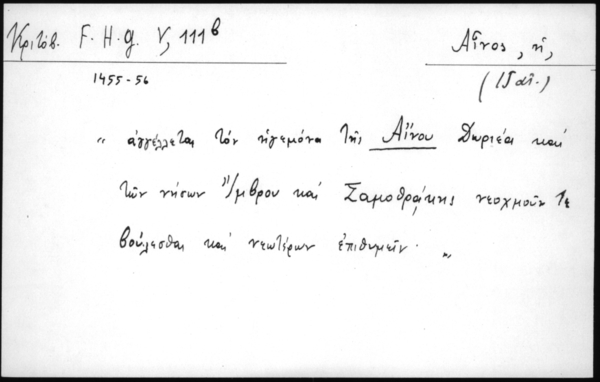 Κριτόβ. F. H. g. V, 111β
Αἶνος, ἡ,
1455-56
(Γατ.)
„ ἀγγέλλεται τὸν ἡγεμόνα τῆς Αἴνου Δωριέα καὶ
τῶν νήσων Ἴμβρου καὶ Σαμοθρᾴκης νεοχμοῦν τε
βούλεσθαι καὶ νεωτέρων ἐπιθυμεῖν· „